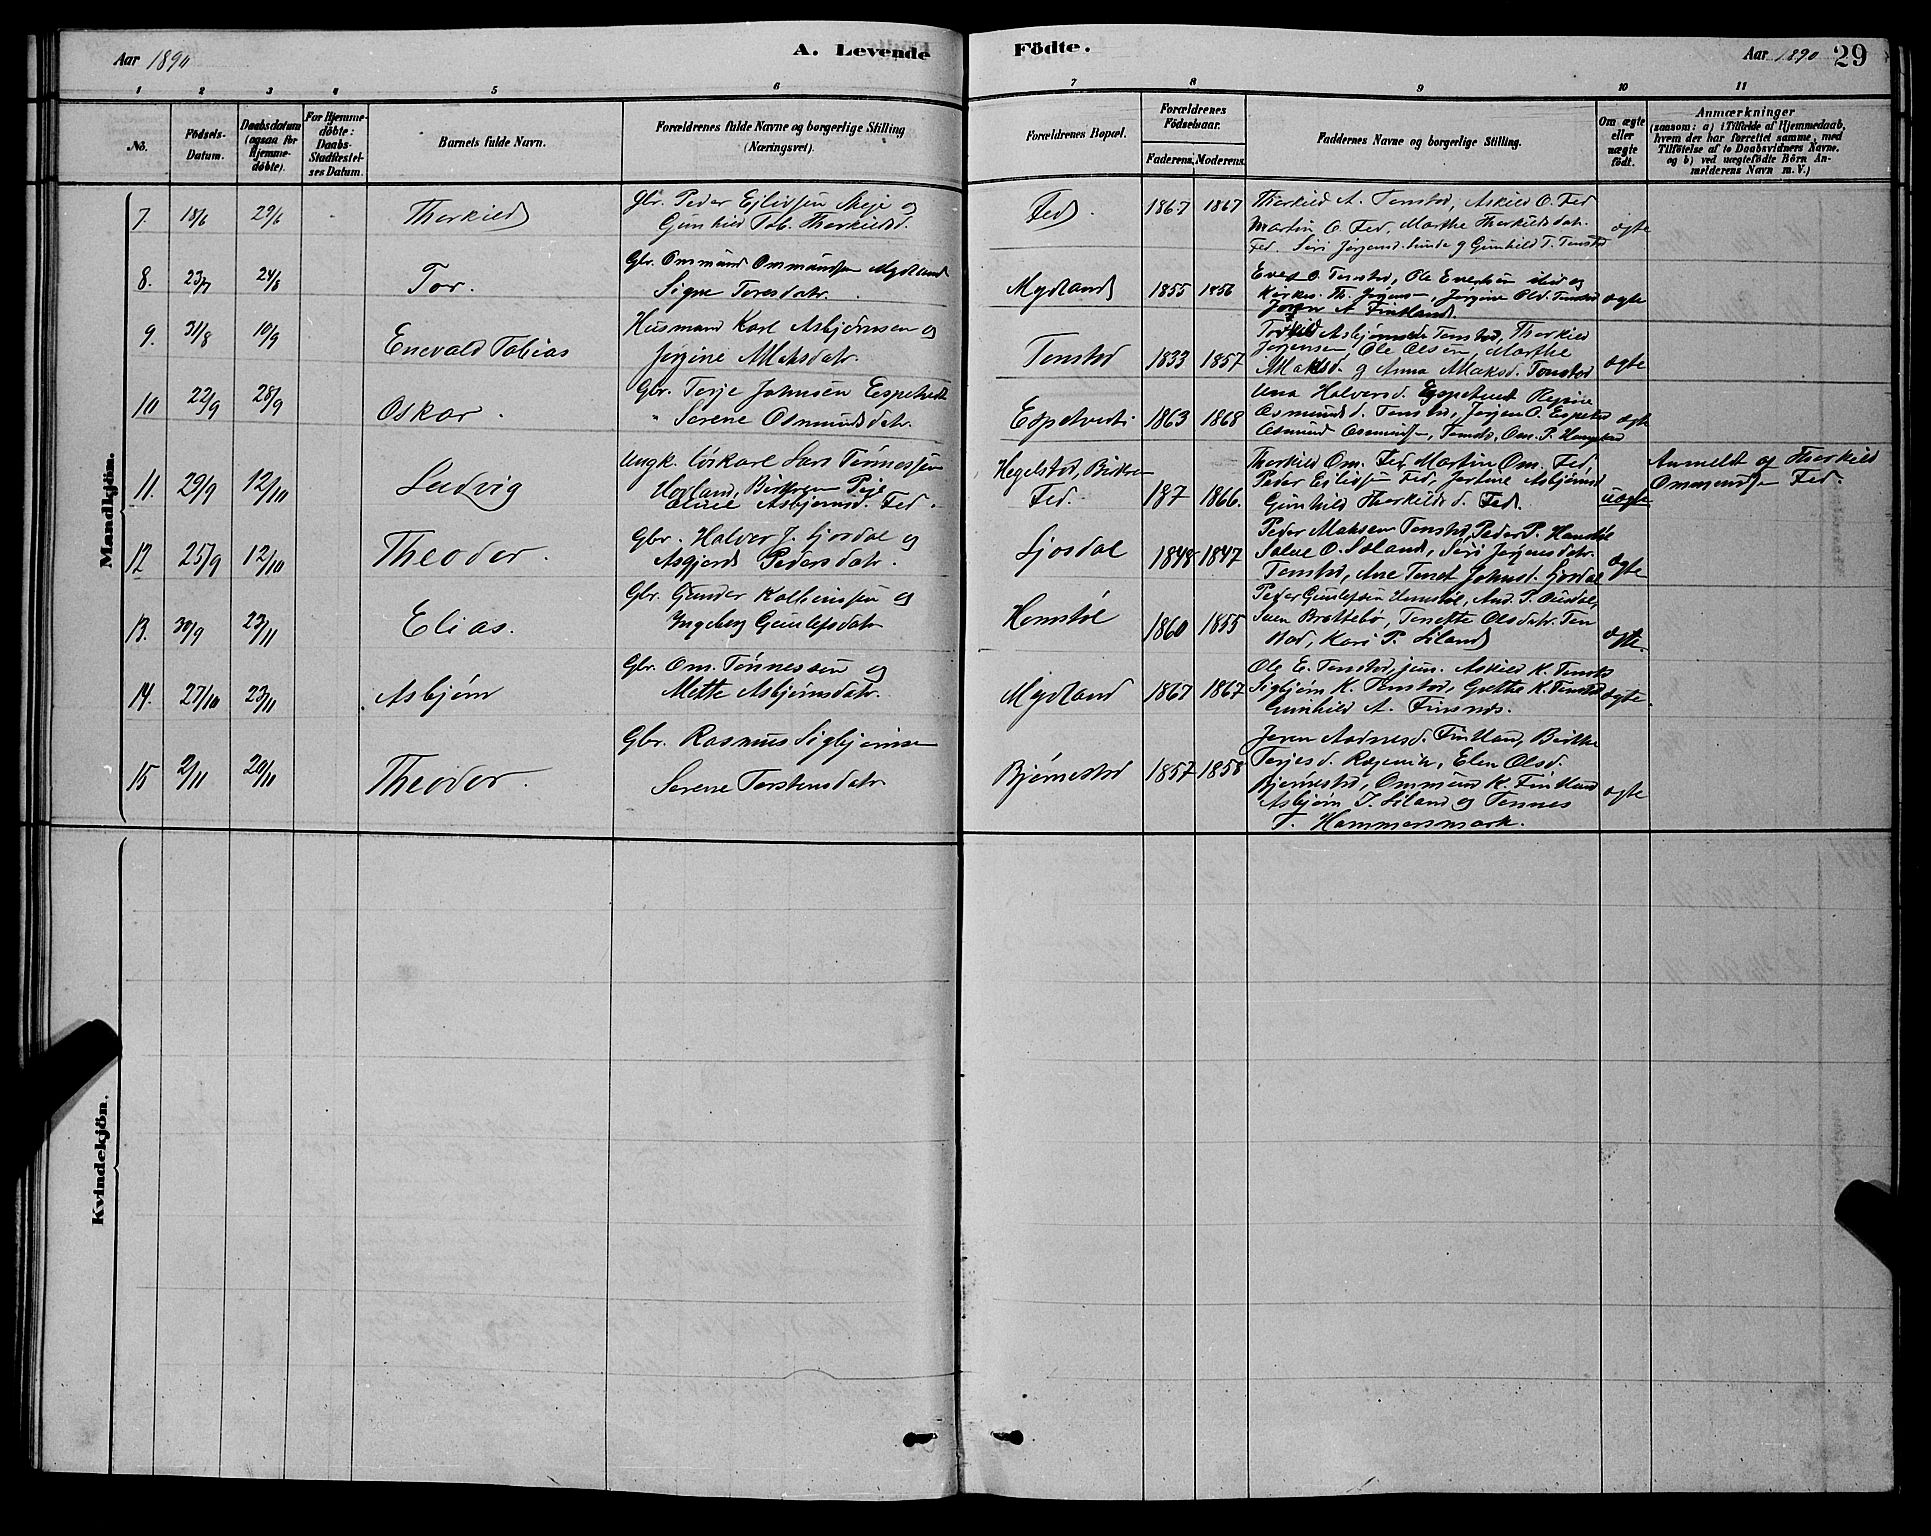 Aar 1890
A. Levende
Födte.
Aar 1890
29
1 2 3 4 5 6 7 8 9 10 11
No.
Födsels-
Datum.
Daabsdatum
(ogsaa for
Hjemme-
döbte).
For Hjemme-
döbte:
Daabs-
Stadfæstel-
ses Datum.
Barnets fulde Navn.
Forældrenes fulde Navne og borgerlige Stilling
(Næringsvei).
Forældrenes Bopæl.
Forældrenes
Födselsaar.
Faderens. Moderens.
Faddernes Navne og borgerlige Stilling.
Om ægte
eller
uægte
födt.
Anmærkninger
(saasom: a) i Tilfælde af Hjemmedaab,
hvem der har forrettet samme, med
Tilföielse af to Daabsvidners Navne,
og b) ved uægtefödte Börn An-
melderens Navn m. V.)
Mandkjön.
7. 18/6 29/6 Thorkild
Gbr. Peder Ejlivsen og
Gunhild Tob. Thorkildsd.
Fed. 1867 1867
Thorkild A. Tonstad, Askild O. Fed
Martin O. Fed, Marthe Thorkildsdatr.
Fed. Siri Jørgensd. Sunde og Gunhild T. Tonstad
ægte
8. 23/7 24/8 Tor.
Gbr. Ommund Ommundsen Mydland
Signe Toresdatr.
Mydland 1855 1856
Even O. Tonstad, Ole Evensen ibid og
Kirkes. Th. Jørgensen, Jørgine Olsd. Tonstad
Jørgen A. Fintland
ægte
9. 31/8 10/9 Enevald Tobias
Husmand Karl Asbjørnsen og
Jørgine Maksdatr.
Tonstad 1833 1857
Torkild Asbjørnsen Tonstad, Thorkild
Jørgensen, Ole Olsen, Marthe
Maksd. og Anna Maksd. Tonstad
ægte
10 22/9 28/9 Oskar.
Gbr. Terje Johnsen Espetvedt
" Serene Osmundsdatr.
Espetvedt 1863 1868
Halversd. Espetvedt
Osmundsd. Tonstad, Jørgen O. Espetved
Osmund Osmundsen, Tonstad, Om. P.
ægte
11. 29/9 12/10 Ludvig
Ungk. Lars Tønnessen
Hovland, Birkrem Pige
Asbjørnsd. Fed.
Hegelstad, Birkrem
Fed. 187 1866.
Thorkild Om. Fed Martin Om. Fed,
Peder Ejlivsen Fed, Jørtine Asbjørnsd
Gunhild Thorkildsd. Fed.
uægte
Anmeldt af Thorkild
Ommundsen Fed.
12 25/9 12/10 Theodor.
Gbr. Halvor J. Josdal og
Asgjerd Pedersdatr.
Josdal 1848 1847
Peder Maksen Tonstad, Peder P. Homstøl
Salve O. Soland, Siri Jørgensdatr.
Tonstad, Ane Johnsd. Josdal
ægte
13. 30/9 23/11 Elias.
Gbr. Gunder Kolbeinsen og
Ingeborg Gunlefsdatr
Homstøl 1860 1855
Peder Gunlefsen Homstøl, And. P. Ousdal,
Sven Brattebø, Tonette Olsdatr. Ton
stad, Kari P. Liland
ægte.
14. 27/10 23/11 Asbjørn
Gbr. Om. Tønnessen og
Mette Asbjørnsdatr.
Mydland 1867 1867
Ole E. Tonstad, jun. Askild K. Tonstad
Sigbjørn K. Tonstad, Grethe K. Tonstad
Gunhild A. Finsnæs.
ægte.
15 2/11 20/11 Theodor.
Gbr. Rasmus Sigbjørnsen
Serene Torstensdatr
Bjørnestad 1857 1858
Joren Aadnesd. Fintland, Birthe
Terjesd. Rosenvin, Elen Olsd.
Bjørnestad, Ommund K. Fintland
Asbjørn I. Liland og Tønnes
T. Hammersmark.
ægte
Kvindekjön.